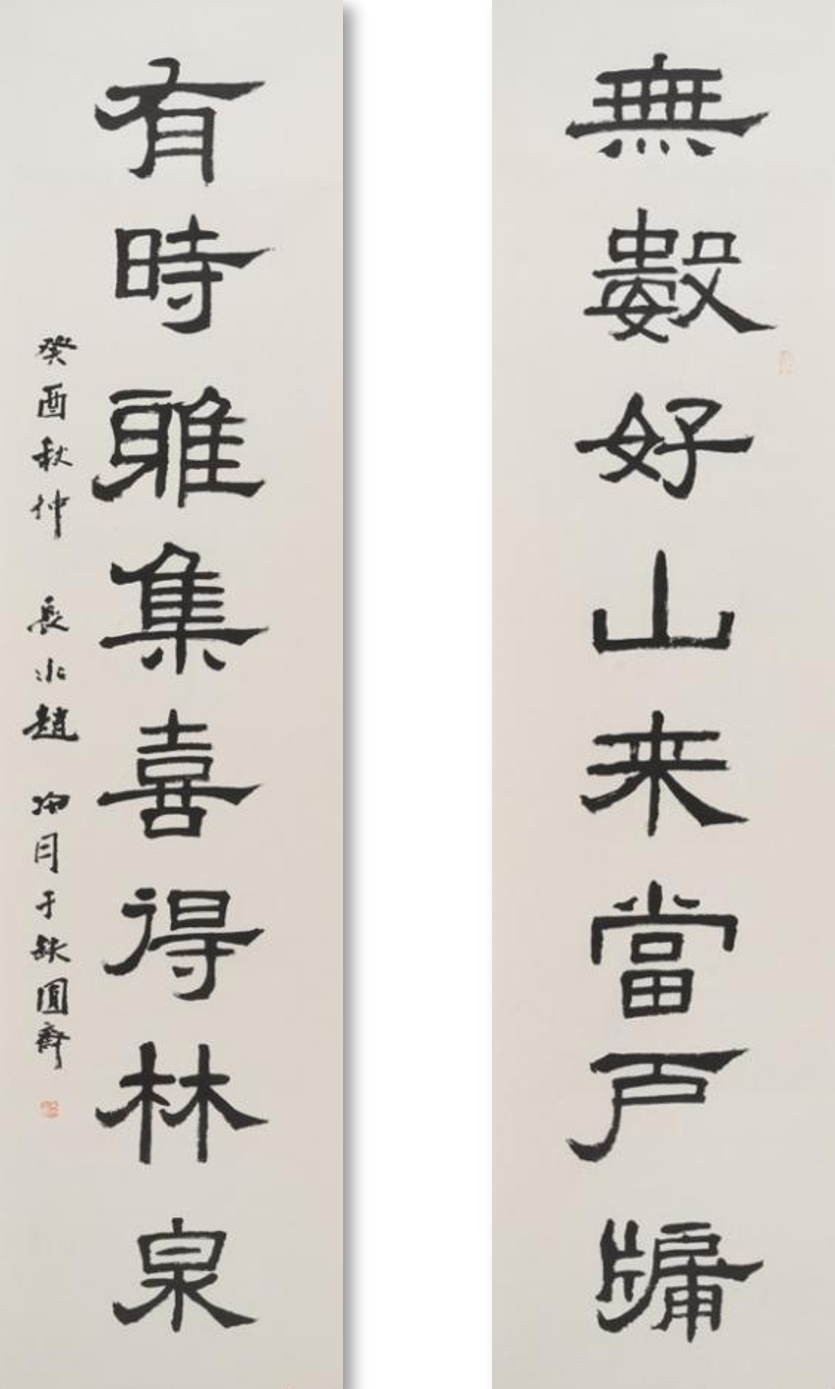 無數好山来當户牖
有時雅集喜得林泉
癸酉秋仲 長水趙 冷月于缺圓齋